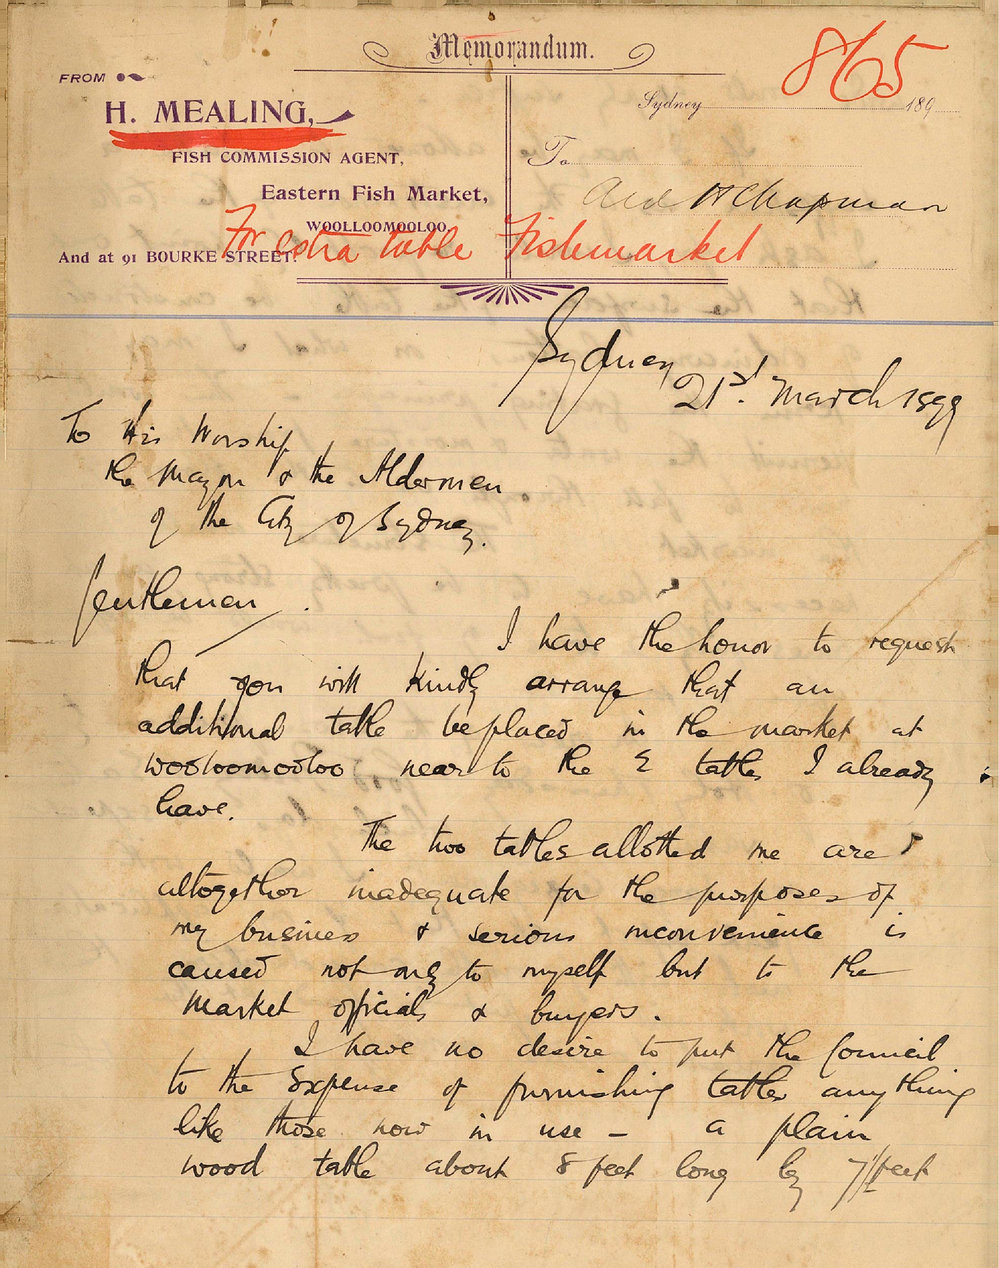 Memorandum.
865
FROM
H. MEALING,
FISH COMMISSION AGENT,
Eastern Fish Market,
WOOLLOOMOOLOO,
And at 91 BOURKE STREET.
Sydney 189
To
Ald H Chapman
For extra table Fishmarket
Sydney
21st March 1899
To His Worship
the Mayor & the Aldermen
of the City of Sydney.
Gentlemen.
I have the honor to request
that you will kindly arrange that an
additional table be placed in the market at
Wooloomooloo near to the 2 tables I already
have.
The two tables allotted me are
altogether inadequate for the purposes of
my business & serious inconvenience is
caused not only to myself but to the
Market officials & buyers.
I have no desire to put the Council
to the Expense of furnishing tables anything
like those now in use – a plain
wood table about 8 feet long by feet